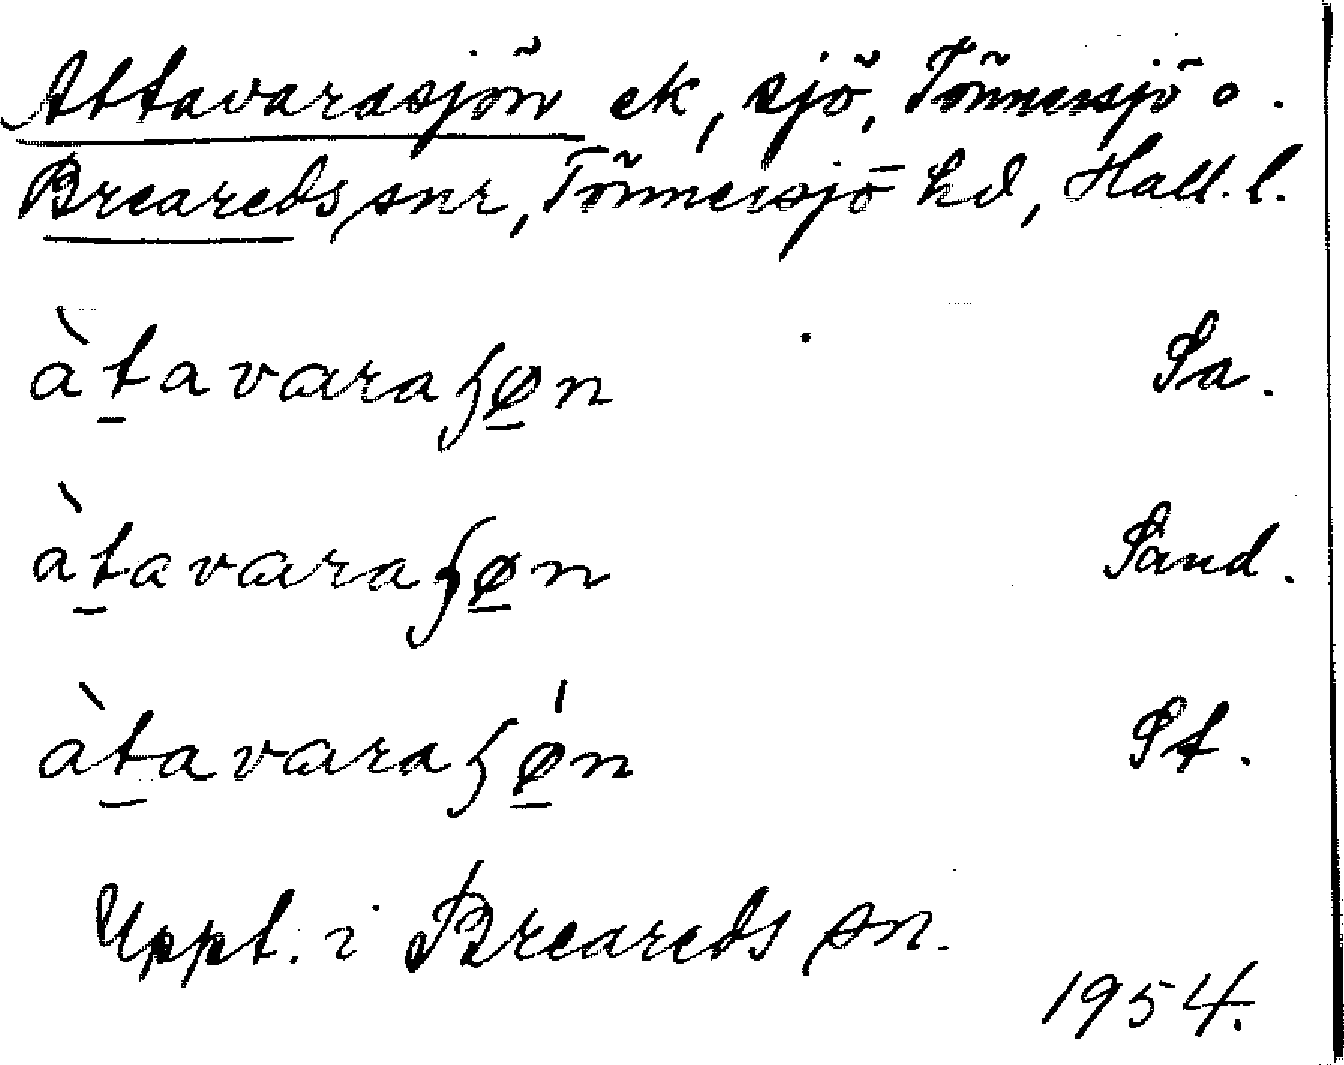 Attavarasjön ek, sjö, Tönnersjö o.
Breareds snr, Tönnersjö hd, Hall. l.
àt̲avaraʂø̲n Sa.
àt̲avaraʂø̲n Sand.
àt̲avaraʂǿ̲n St.
Uppt. i Breareds sn.
1954.